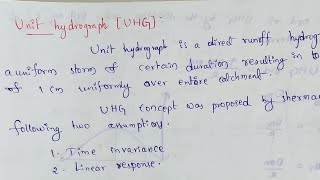 Unit hydrograph [UHG]:-
Unit hydrograph is a direct runoff hydrog
a uniform storm of certain duration resulting in to
of 1 cm uniformly over entire catchment.
UHG concept was proposed by sherma
following two assumption.
1. Time invariance
2. Linear response.